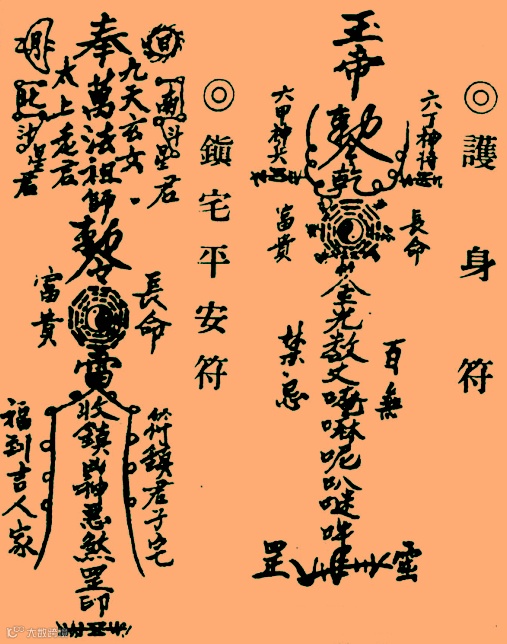 ◎護身符
玉帝
六丁神将
六甲神兵
敕令
乾
長命
富貴
金光
唵嘛呢叭
吽
百無
禁忌
罡
靈
◎鎮宅平安符
日
月
南斗星君
北斗星君
九天玄女
太上老君
奉萬法祖師
敕令
長命
富貴
雷
收鎮凶神惡煞罡印
此符鎮君子宅
福到吉人家
大数跨境